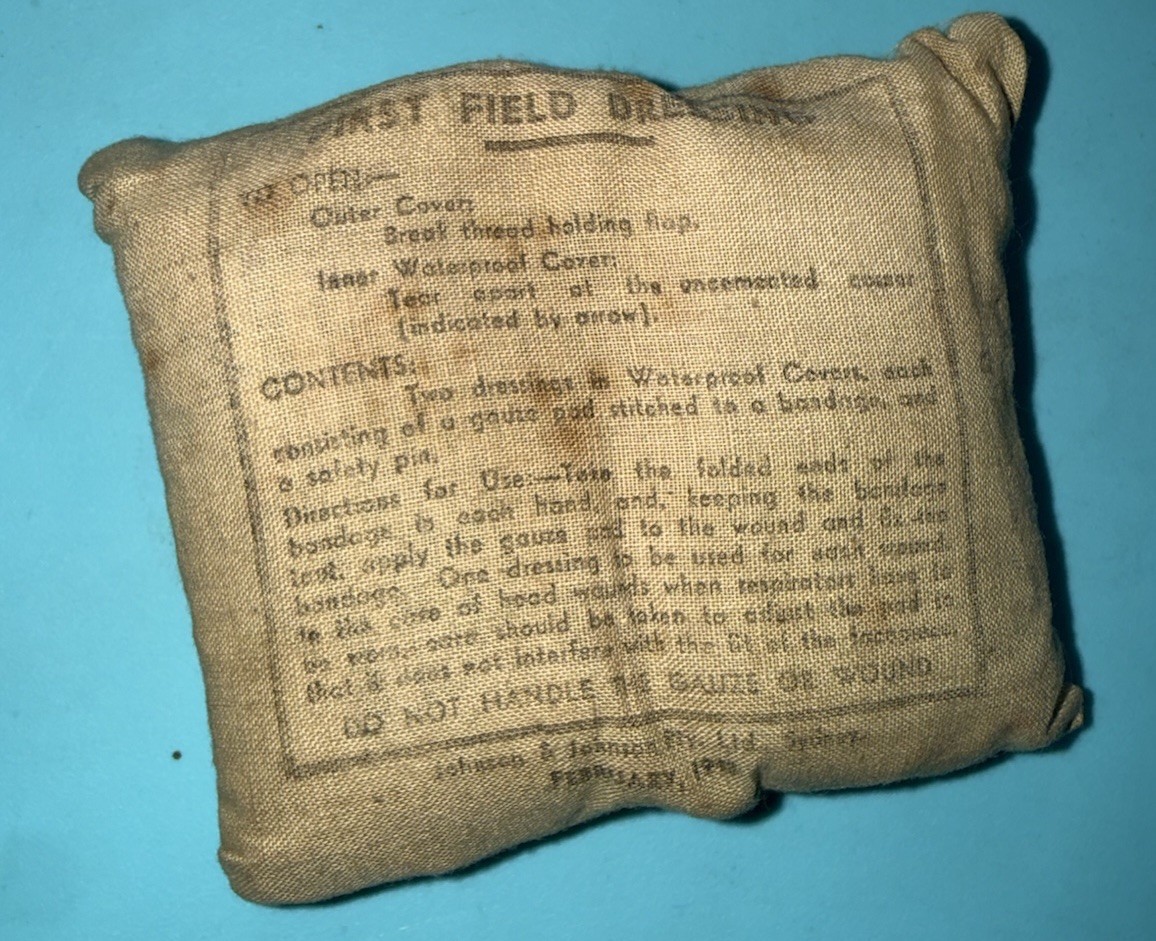 FIRST FIELD DRESSING
TO OPEN:—
Outer Cover:
Break thread holding flap.
Inner Waterproof Cover:
Tear apart at the uncemented corner
(indicated by arrow).
CONTENTS:
Two dressings in Waterproof Covers, each
consisting of a gauze pad stitched to a bandage, and
a safety pin.
Directions for Use:—Take the folded ends of the
bandage in each hand, and, keeping the bandage
taut, apply the gauze pad to the wound and fix the
bandage. One dressing to be used for each wound.
In the case of head wounds when respirators have to
be worn, care should be taken to adjust the pad so
that it does not interfere with the fit of the facepiece.
DO NOT HANDLE THE GAUZE OR WOUND
Johnson & Johnson Pty. Ltd. Sydney.
FEBRUARY,